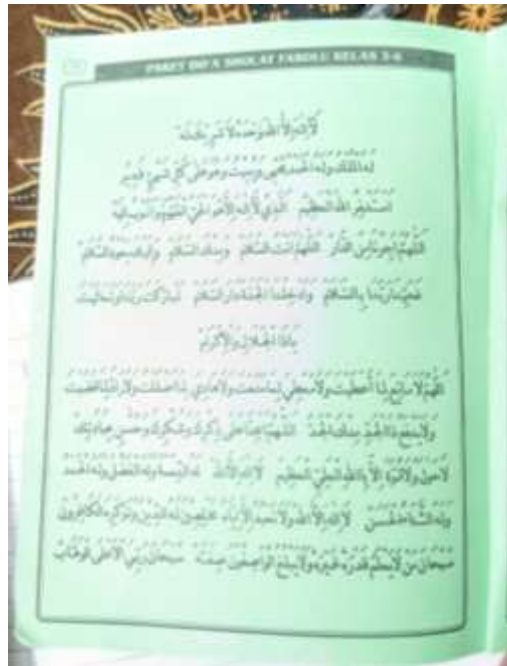 PAKET DO'A SHOLAT FARDLU KELAS 3-6
لَا إِلَهَ إِلَّا اللهُ وَحْدَهُ لَا شَرِيْكَ لَهُ
لَهُ الْمُلْكُ وَلَهُ الْحَمْدُ يُحْيِي وَيُمِيْتُ وَهُوَ عَلَى كُلِّ شَيْءٍ قَدِيْرٌ
اَسْتَغْفِرُ اللهَ الْعَظِيْمَ الَّذِي لَا إِلَهَ إِلَّا هُوَ الْحَيُّ الْقَيُّوْمُ وَأَتُوْبُ إِلَيْهِ
اَللّٰهُمَّ أَجِرْنَا مِنَ النَّارِ اَللّٰهُمَّ أَنْتَ السَّلَامُ وَمِنْكَ السَّلَامُ وَإِلَيْكَ يَعُوْدُ السَّلَامُ
فَحَيِّنَا رَبَّنَا بِالسَّلَامِ وَأَدْخِلْنَا الْجَنَّةَ دَارَ السَّلَامِ تَبَارَكْتَ رَبَّنَا وَتَعَالَيْتَ
يَا ذَا الْجَلَالِ وَالْإِكْرَامِ
اَللّٰهُمَّ لَا مَانِعَ لِمَا أَعْطَيْتَ وَلَا مُعْطِيَ لِمَا مَنَعْتَ وَلَا هَادِيَ لِمَا أَضْلَلْتَ وَلَا رَادَّ لِمَا قَضَيْتَ
وَلَا يَنْفَعُ ذَا الْجَدِّ مِنْكَ الْجَدُّ اَللّٰهُمَّ أَعِنَّا عَلَى ذِكْرِكَ وَشُكْرِكَ وَحُسْنِ عِبَادَتِكَ
لَا حَوْلَ وَلَا قُوَّةَ إِلَّا بِاللهِ الْعَلِيِّ الْعَظِيْمِ لَا إِلَهَ إِلَّا اللهُ لَهُ النِّعْمَةُ وَلَهُ الْفَضْلُ وَلَهُ الْحَمْدُ
وَلَهُ الثَّنَاءُ الْحَسَنُ لَا إِلَهَ إِلَّا اللهُ وَلَا نَعْبُدُ إِلَّا إِيَّاهُ مُخْلِصِيْنَ لَهُ الدِّيْنَ وَلَوْ كَرِهَ الْكَافِرُوْنَ
سُبْحَانَ مَنْ لَا يَعْلَمُ قَدْرَهُ غَيْرُهُ وَلَا يَبْلُغُ الْوَاصِفُوْنَ صِفَتَهُ سُبْحَانَ رَبِّيَ الْأَعْلَى الْوَهَّابِ